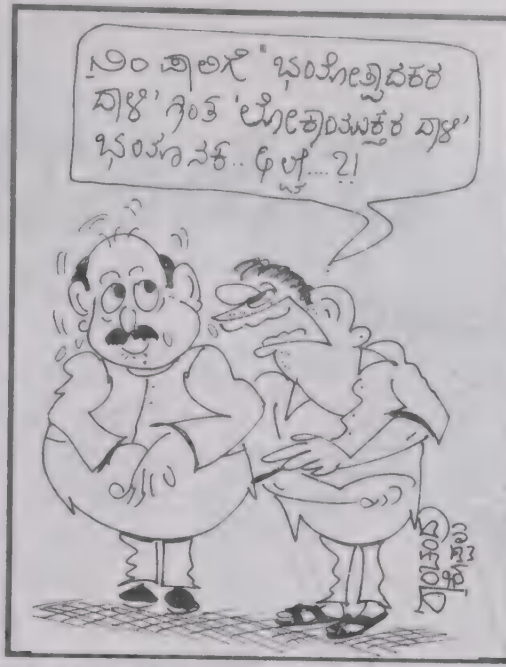 ನಿಂ ಪಾಲಿಗೆ 'ಭಯೋತ್ಪಾದಕರ
ದಾಳಿ' ಗಿಂತ 'ಲೋಕಾಯುಕ್ತರ ದಾಳಿ'
ಭಯಾನಕ.. ಅಲ್ವೆ...?!